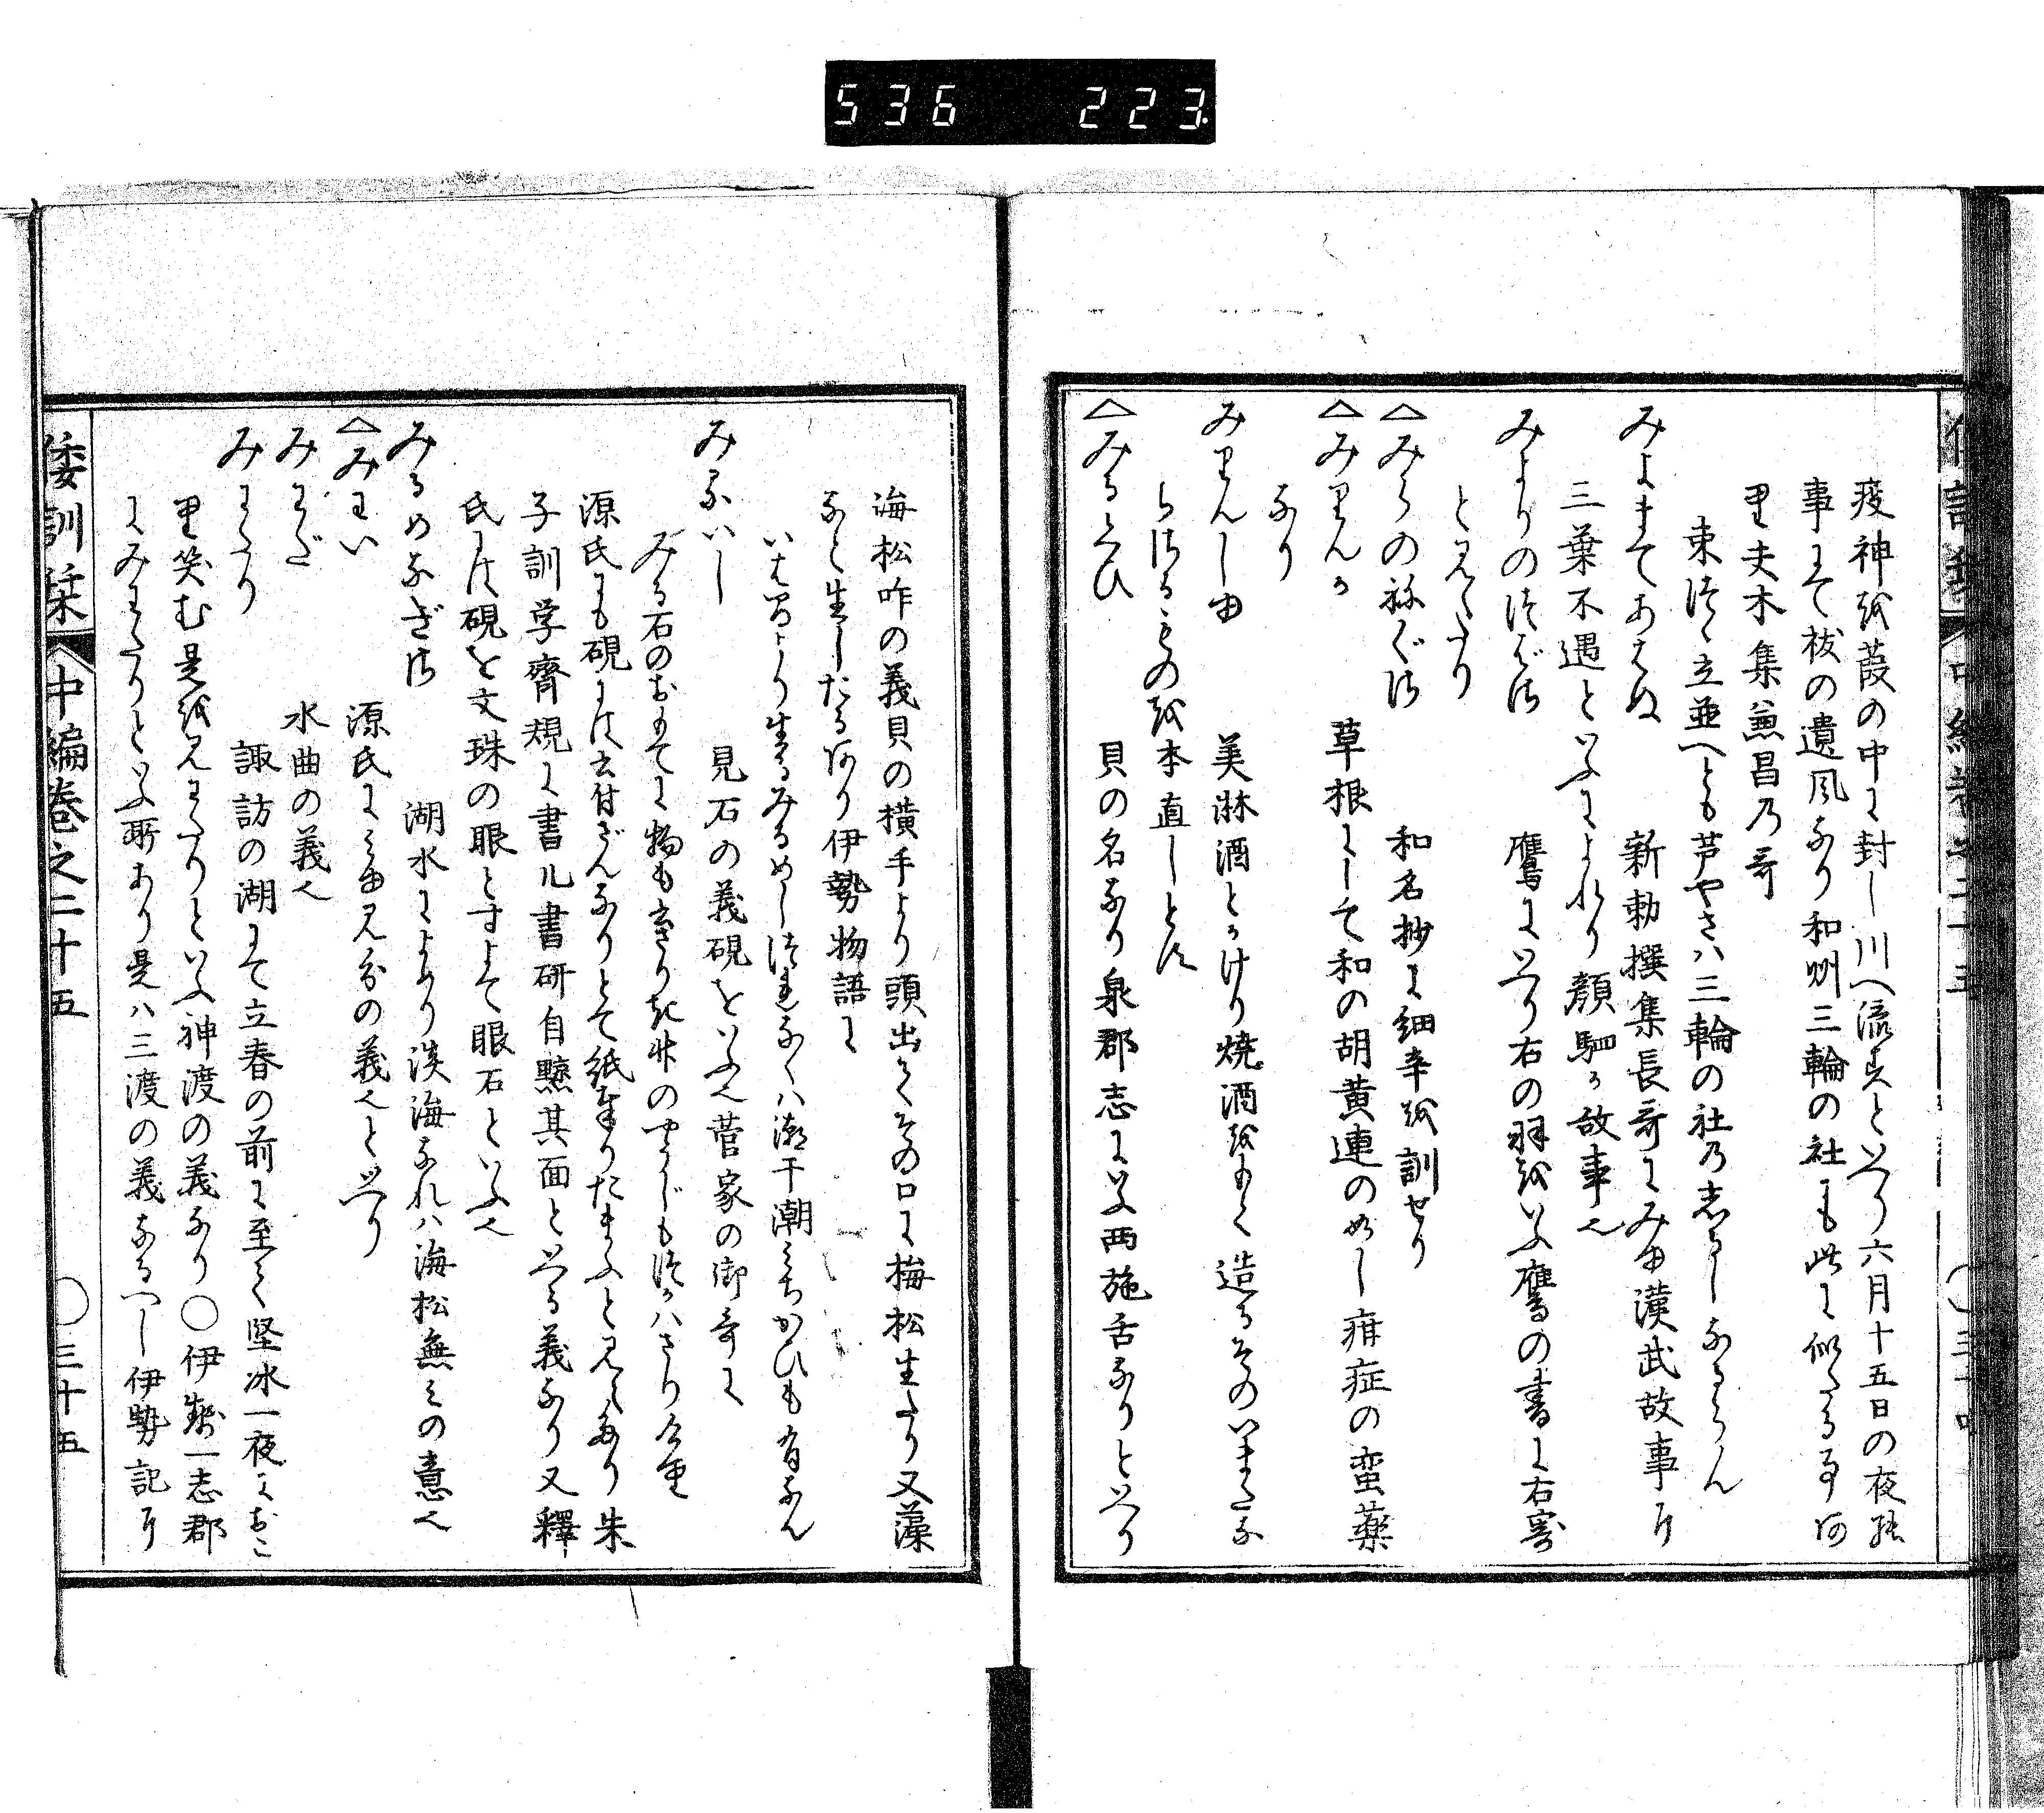 536 223
疫神を葭の中に封し川へ流すといへり六月十五日の夜祓
事にて祓の遺風なり和州三輪の社にも此に似たる事あ
り夫木集兼昌乃哥
束ねつゝ立並へとも芦やさハ三輪の社乃志るしなるらん
みよまてあはぬ 新勅撰集長哥にみゆ漢武故事に
三葉不遇といふによれり顔駟か故事也
みよりのつばさ 鷹にいへり右の羽をいふ鷹の書に右寄
と見えたり
△みらのねぐさ 和名抄に細辛を訓せり
△みりんか 草根にして和の胡黄連の如し疳症の蛮薬
なり
みりんしゆ 美淋酒とかけり焼酒をもて造るそのいまた
らさるものを本直しとす
△みるくひ 貝の名なり泉郡志にハ西施舌なりといへり
海松咋の義貝の横手より頭出てその口に梅松生たり又藻
なと生したるあり伊勢物語に
いはまより生るみるめしつれなくハ潮干潮みちかひも有なん
みるいし 見石の義硯をいふ也菅家の御哥に
みる石のおもてに物もかきりき
源氏にも硯には云付ざんなりとて紙奉りたまふと見えたり朱
子訓学齊規に書几書研自黙其面といへる義なり又釋
氏には硯を文珠の眼とすよて眼石といふ也
みるめなぎさ 湖水によめり淡海なれハ海松無きの意也
△みわい 源氏にみゆ見分の義也といへり
みわだ 水曲の義也
みわたり 諏訪の湖にて立春の前に至て堅氷一夜におこ
り笑む是を見わたりといふ神渡の義なり○伊勢一志郡
にみわたりといふ所あり是ハ三渡の義なるへし伊勢記に
倭訓栞 中編巻之二十五 ○三十五